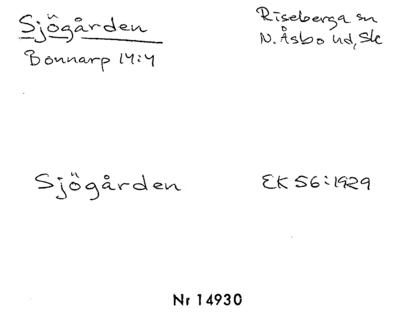 Sjögården
Riseberga sn
Bonnarp 14:4
N. Åsbo hd, Sk
Sjögården
EK 56:1929
Nr 14930